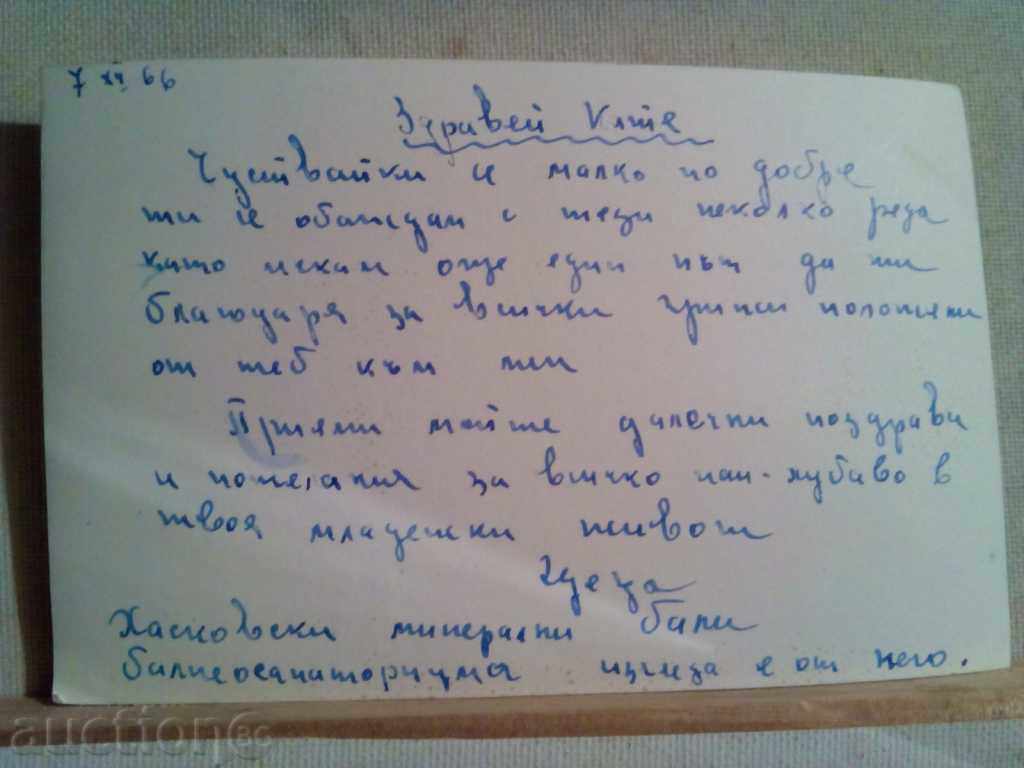 7 XI 66
Здравей Кате
Чуствайки се малко по добре
ти се обаждам с тези неколко реда
като искам още един път да ти
благодаря за всички грижи положени
от теб към мен
Приеми моите далечни поздрави
и пожелания за всичко най-хубаво в
твоя младежки живот
Хасковски минерални бани
балнеосанаториума изглед е от него.
auction.bg